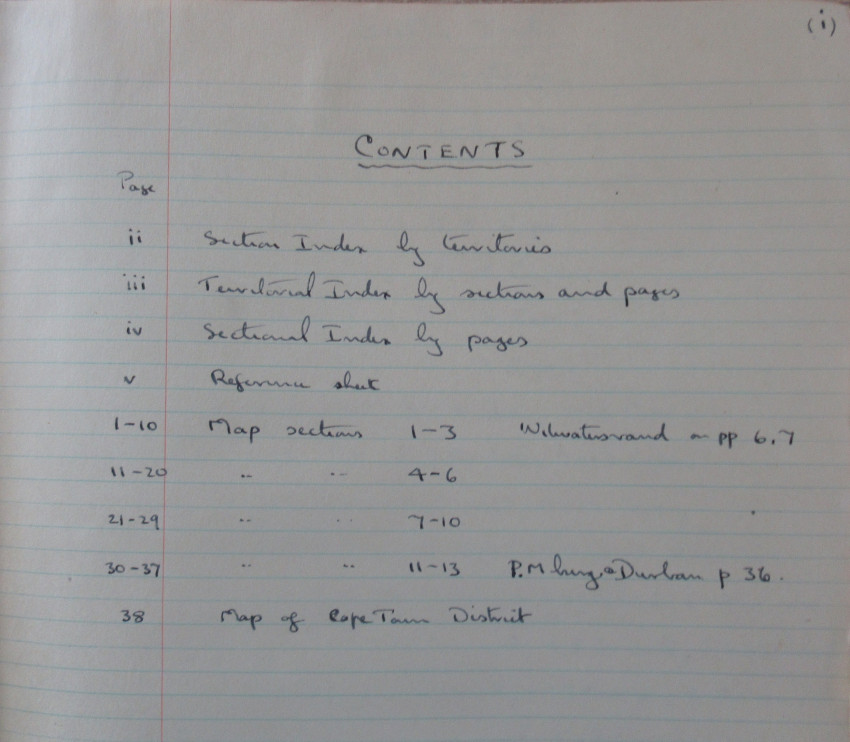 (i)
CONTENTS
Page
ii Section Index by territories
iii Territorial Index by sections and pages
iv Sectional Index by pages
v Reference sheet
1-10 Map sections 1-3 Witwatersrand on pp 6,7
11-20 " " 4-6
21-29 " " 7-10
30-37 " " 11-13 P.M burg & Durban p 36.
38 Map of Cape Town District